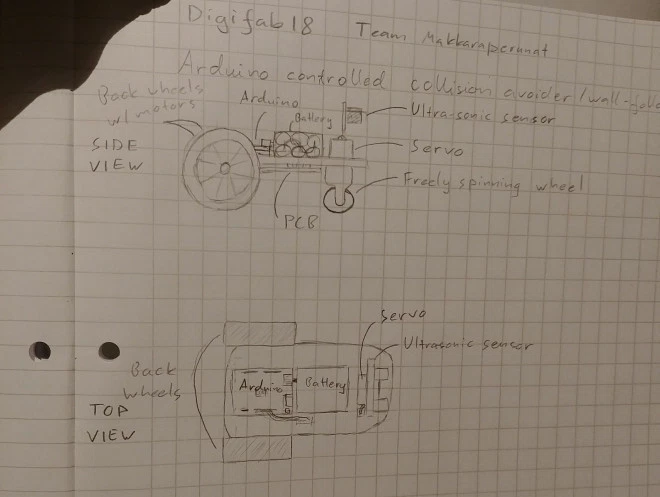 Digifab18 Team Makkaraperunat
Arduino controlled collision avoider/wall-
Back wheels
w/ motors
Arduino
Battery
Ultra-sonic sensor
SIDE
VIEW
Servo
Freely spinning wheel
PCB
Servo
Ultrasonic sensor
Back
wheels
Arduino
Battery
TOP
VIEW